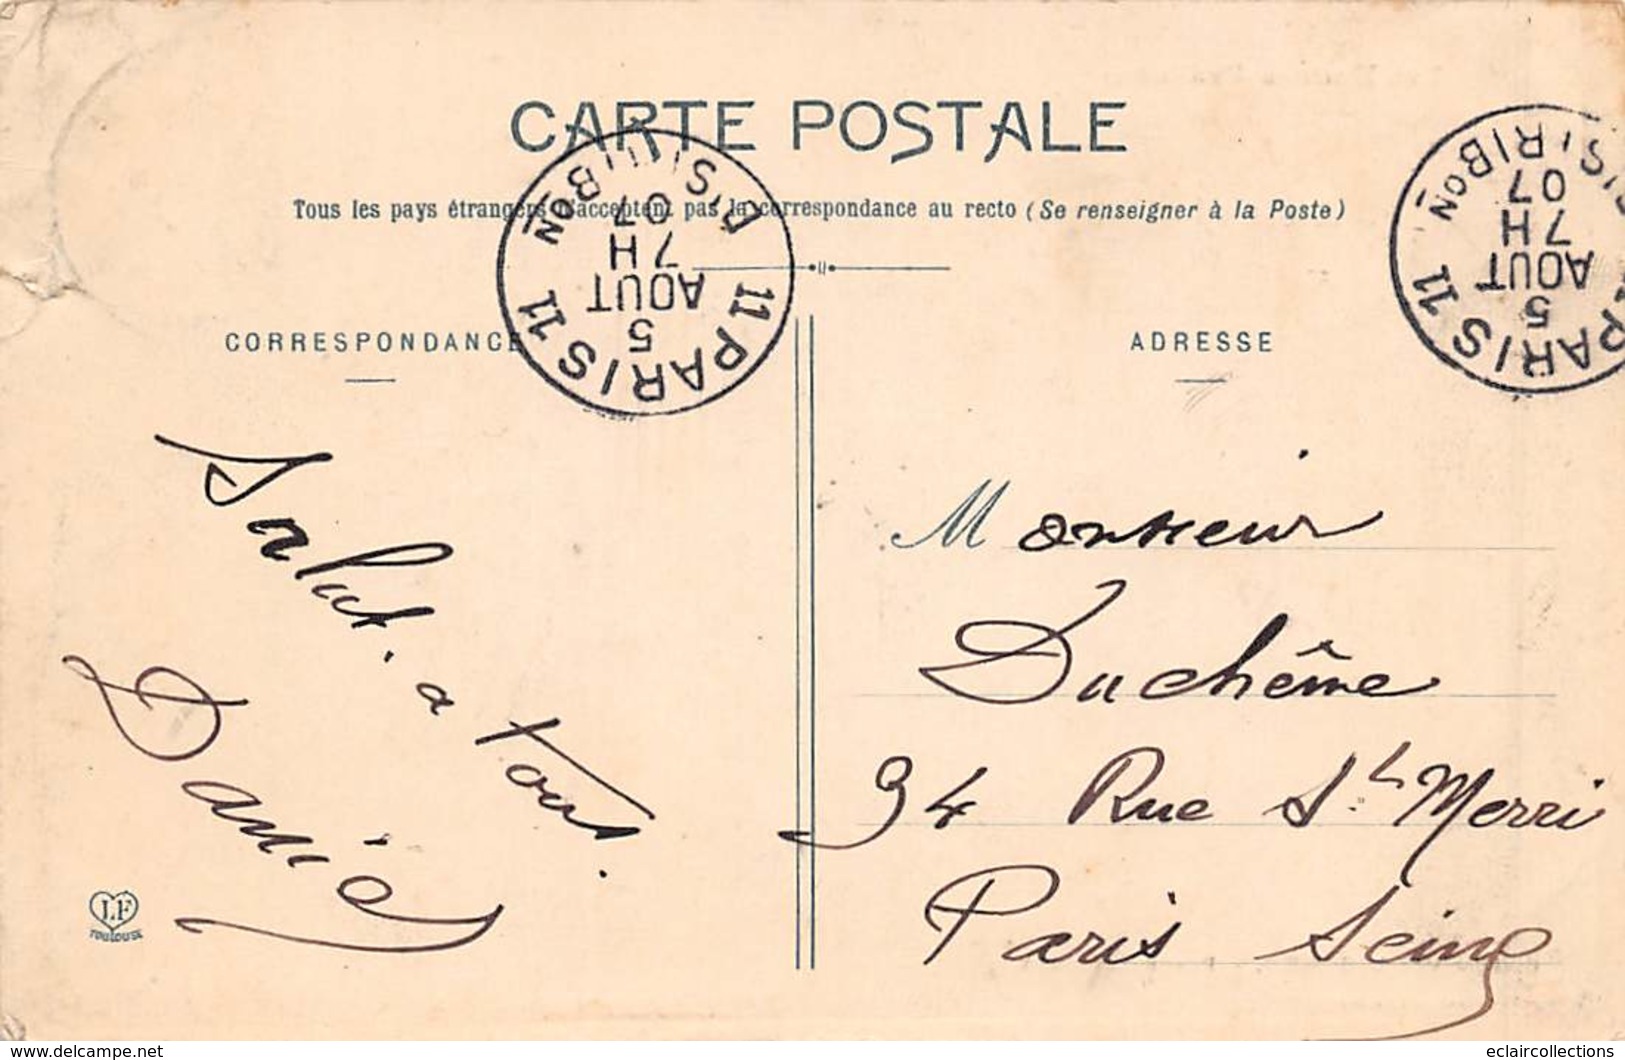 CARTE POSTALE
Tous les pays étrangers n'acceptent pas la correspondance au recto (Se renseigner à la Poste)
PARIS 11
5
AOUT
7H
07
PARIS 11
5
AOUT
7H
07
CORRESPONDANCE
ADRESSE
Salut a tous.
David
LF
TOULOUSE
Monsieur
Duchême
94 Rue St Merri
Paris Seine
eclaircollections